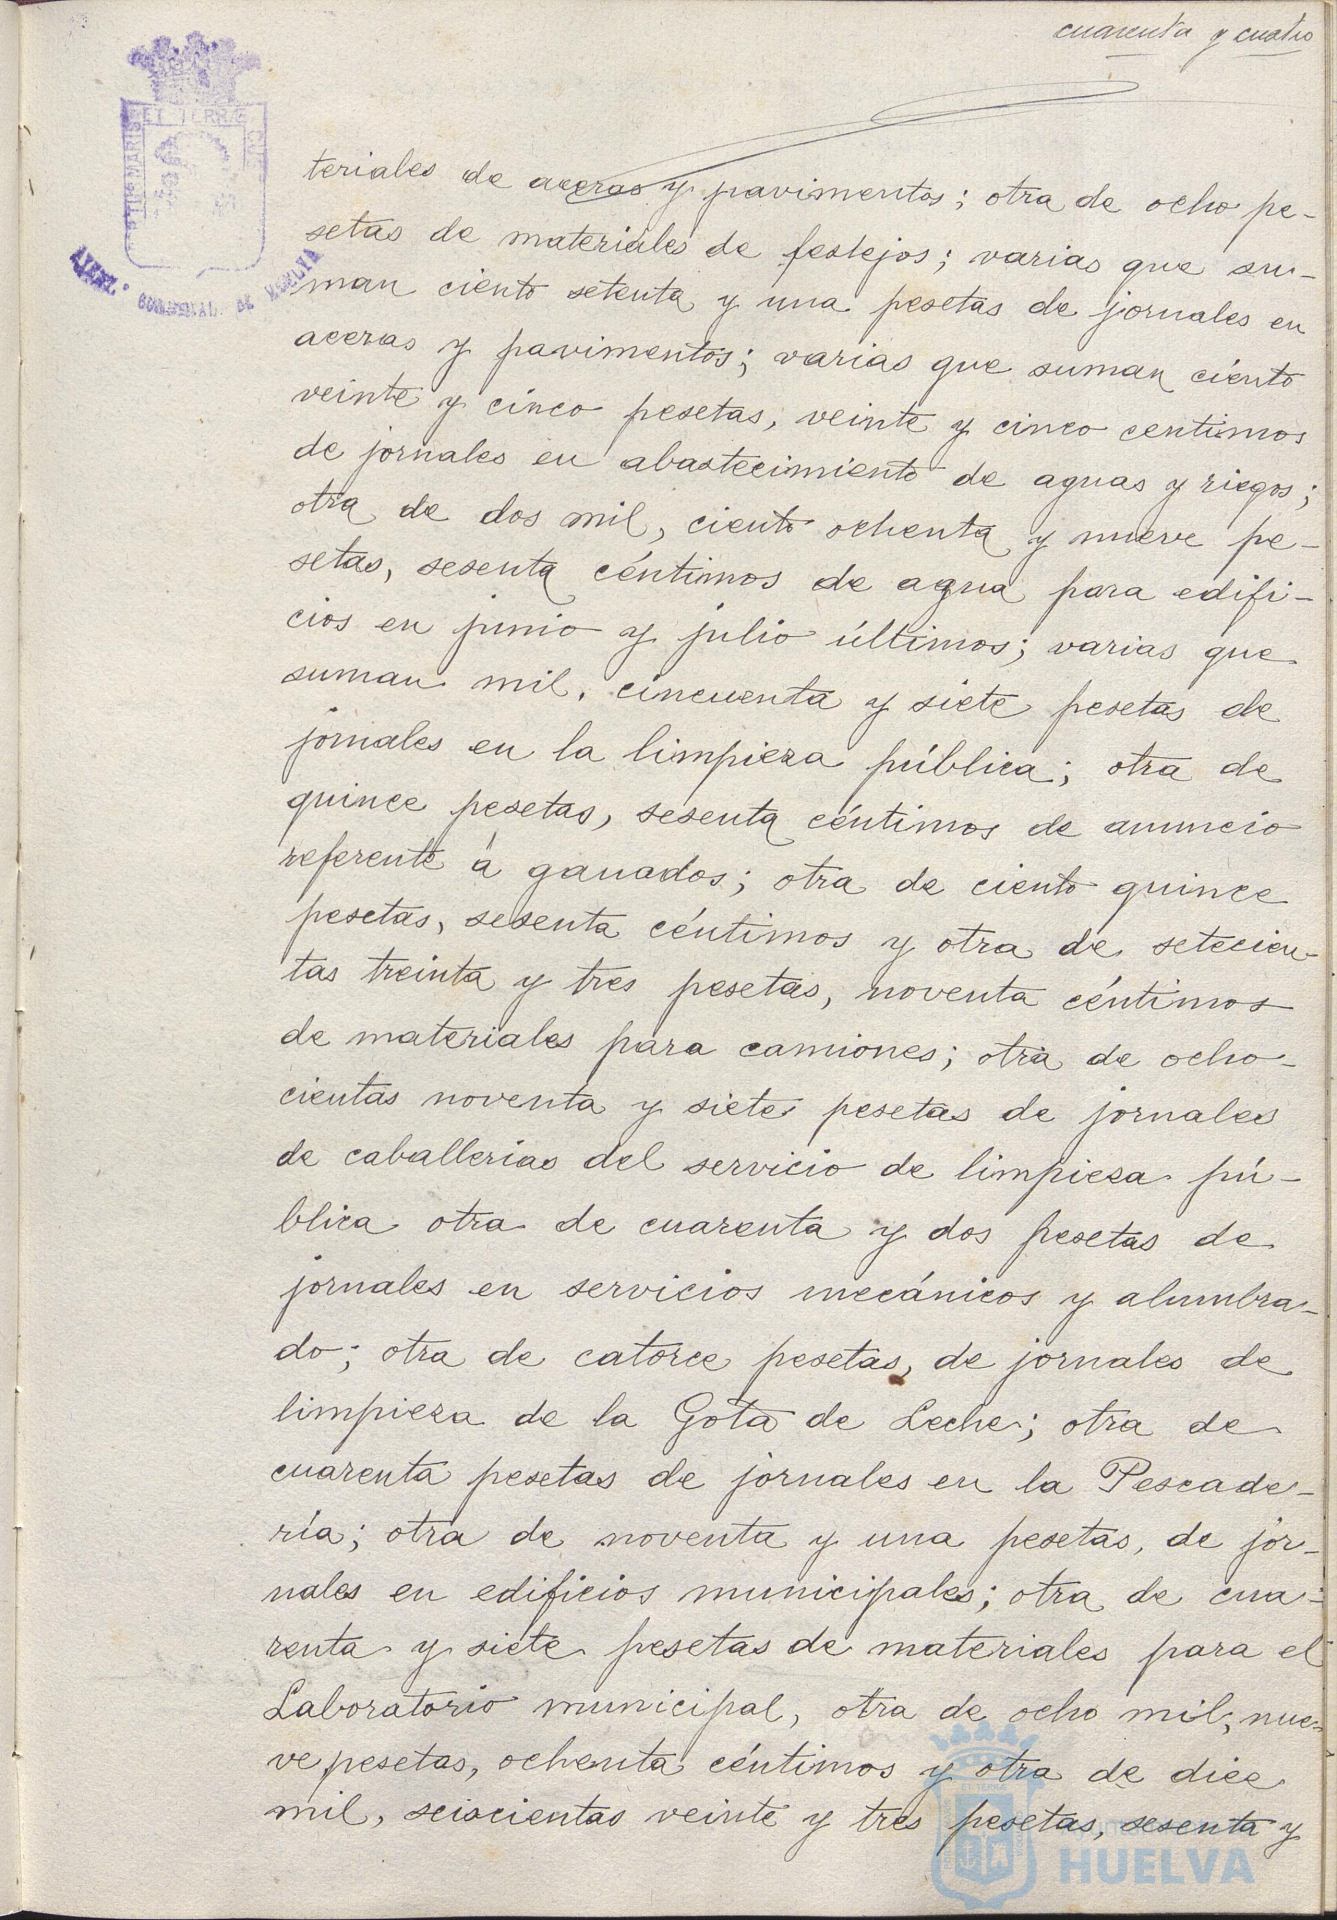 cuarenta y cuatro
ET TERRÆ
AYUNT. CONSTITUCIONAL DE HUELVA
teriales de aceras y pavimentos; otra de ocho pe-
setas de materiales de festejos; varias que su-
man ciento setenta y una pesetas de jornales en
aceras y pavimentos; varias que suman ciento
veinte y cinco pesetas, veinte y cinco centimos
de jornales en abastecimiento de aguas y riegos;
otra de dos mil, ciento ochenta y nueve pe-
setas, sesenta céntimos de agua para edifi-
cios en junio y julio últimos; varias que
suman mil, cincuenta y siete pesetas de
jornales en la limpieza pública; otra de
quince pesetas, sesenta céntimos de anuncio
referente á ganados; otra de ciento quince
pesetas, sesenta céntimos y otra de setecien-
tas treinta y tres pesetas, noventa céntimos
de materiales para camiones; otra de ocho-
cientas noventa y siete pesetas de jornales
de caballerias del servicio de limpieza pú-
blica otra de cuarenta y dos pesetas de
jornales en servicios mecánicos y alumbra-
do; otra de catorce pesetas, de jornales de
limpieza de la Gota de Leche; otra de
cuarenta pesetas de jornales en la Pescade-
ría; otra de noventa y una pesetas, de jor-
nales en edificios municipales; otra de cua-
renta y siete pesetas de materiales para el
Laboratorio municipal, otra de ocho mil, nue-
ve pesetas, ochenta céntimos y otra de diez
mil, seiscientas veinte y tres pesetas, sesenta y
HUELVA